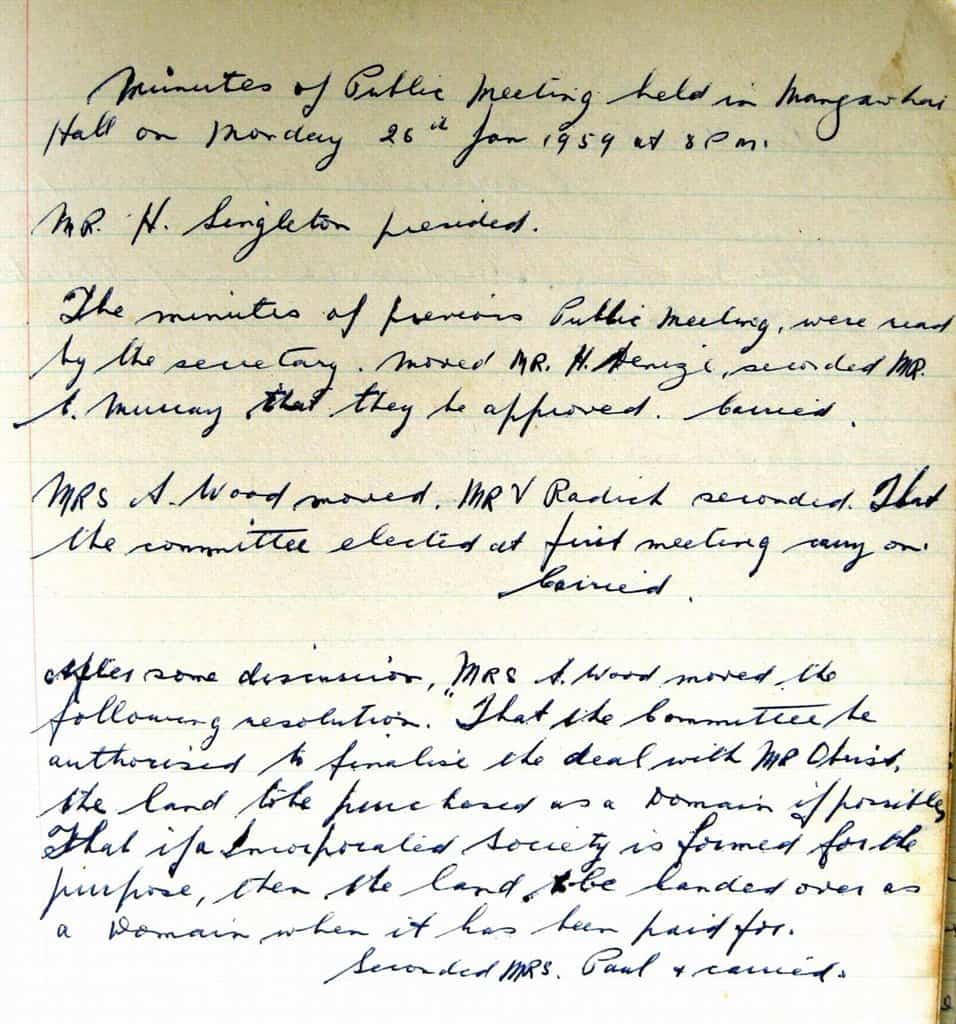 Minutes of Public Meeting held in Mangawhai
Hall on Monday 26th Jan 1959 at 8 P m.
MR. H. Singleton presided.
The minutes of previous Public Meeting, were read
by the secretary. Moved MR. H. seconded MR.
Murray that they be approved. Carried.
MRS A. Wood moved. MR V Radich seconded. That
the committee elected at first meeting carry on.
Carried.
After some discussion, MRS A. Wood moved the
following resolution. That the Committee be
authorised to finalise the deal with MR
the land to be purchased as a Domain if possible,
That if a Incorporated Society is formed for the
purpose, then the land to be handed over as
a Domain when it has been paid for.
Seconded MRS. Paul + carried.